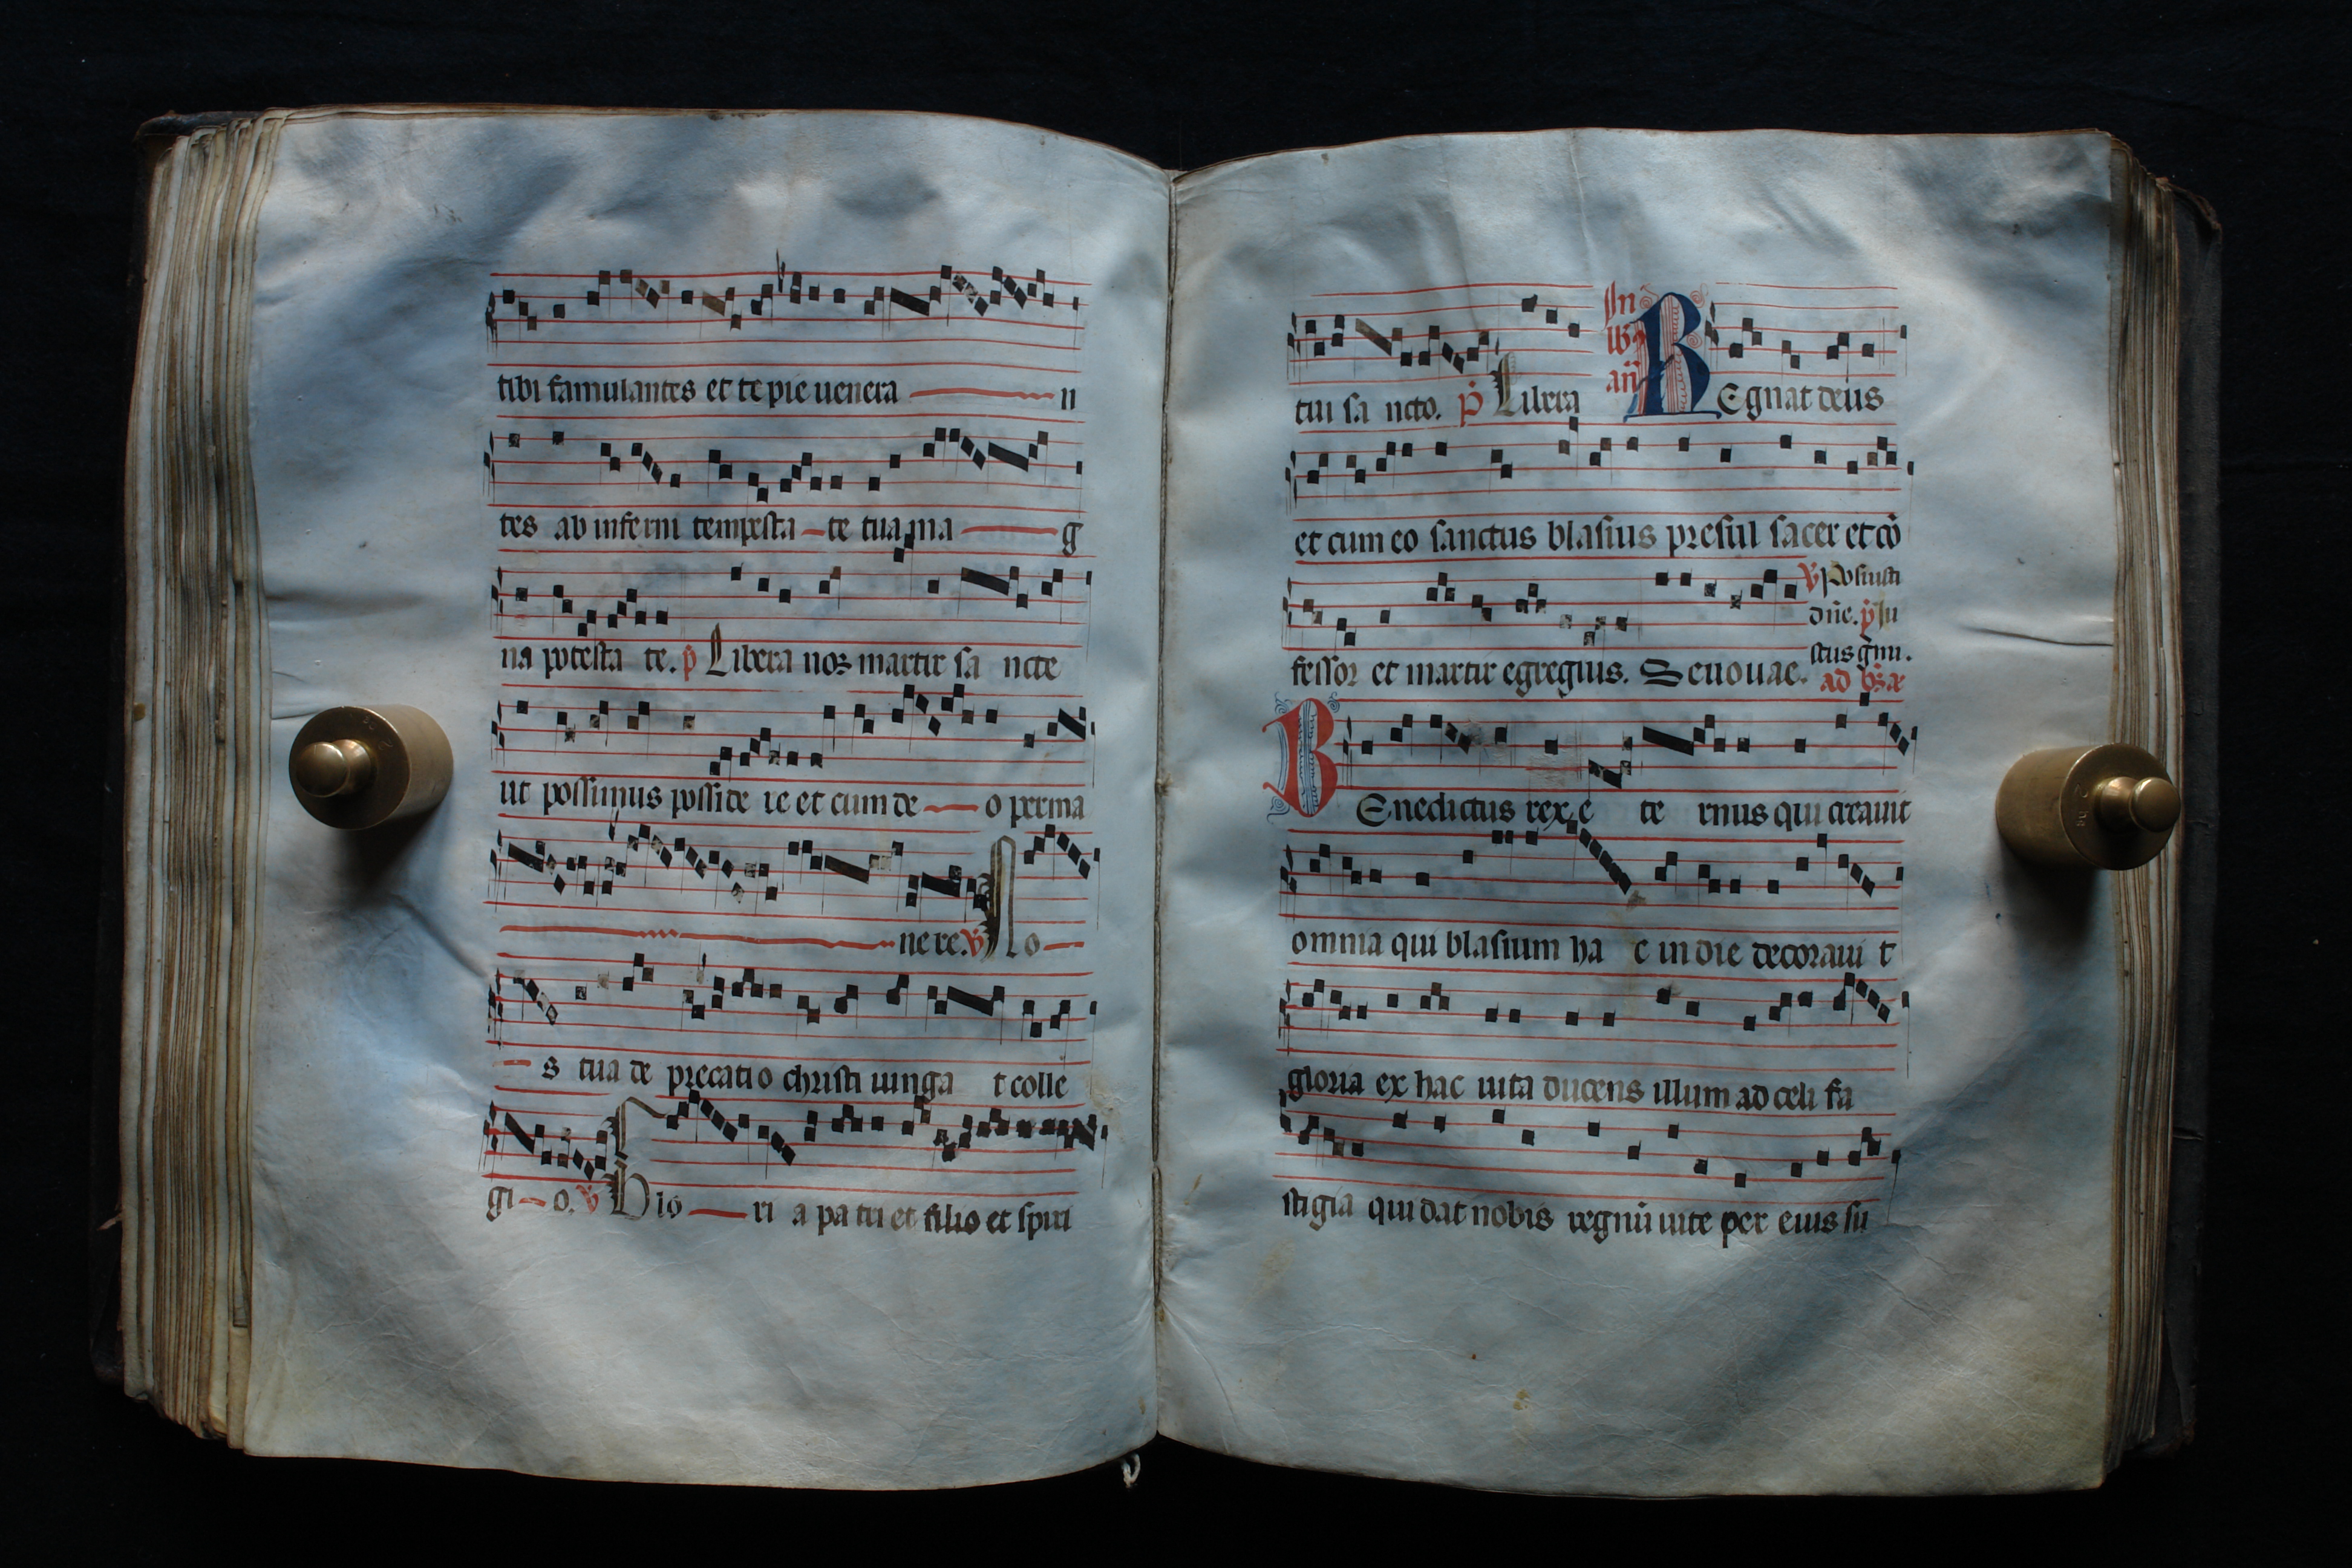 tibi famulantes et te pie venera n
tes ab inferni tempesta te tua ma g
na potesta te. p̄ Libera nos martir sa ncte
ut possimus posside re et cum de o perma
ne re. V̄ No
s tua de precatio christi iunga t colle
gi o. V̄ Glo ri a pa tri et filio et spiri
tui sa ncto. p̄ Libera
In
lb9
añ
REgnat deus
et cum eo sanctus blasius presul sacer et cō
fessor et martir egregius. Seuouae.
V̄ Posuisti
dñe. p̄ Iu
stus gmi.
ad
BEnedictus rex e te rnus qui creauit
omnia qui blasium ha c in die decoraui t
gloria ex hac uita ducens illum ad celi fa
stigia qui dat nobis regnū uite per eius su